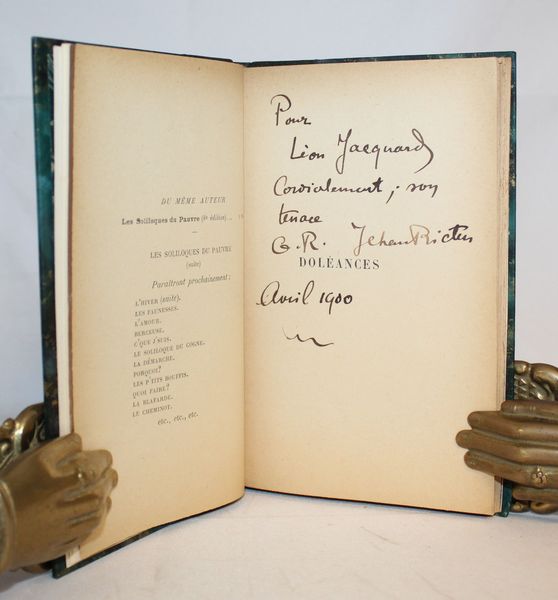 DU MÊME AUTEUR
Les Soliloques du Pauvre (6e édition)...
LES SOLILOQUES DU PAUVRE
(suite)
Paraîtront prochainement :
L'HIVER (suite).
LES FAUNESSES.
L'AMOUR.
BERCEUSE.
C'QUE J'SUIS.
LE SOLILOQUE DU COGNE.
LA DÉMARCHE.
PORQUOI?
LES P'TITS BOUFFIS.
QUOI FAIRE?
LA BLAFARDE.
LE CHEMINOT.
etc., etc., etc.
Pour
Léon Jacquard
Cordialement ; son
tenace
G.R. Jehan Rictus
DOLÉANCES
Avril 1900